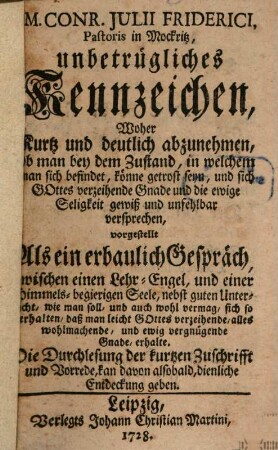 M. CONR. JULII FRIDERICI,
Pastoris in Mockritz,
unbetrügliches
Kennzeichen,
Woher
Kurtz und deutlich abzunehmen,
ob man bey dem Zustand, in welchem
man sich befindet, könne getrost seyn, und sich
GOttes verzeihende Gnade und die ewige
Seligkeit gewiß und unfehlbar
versprechen,
vorgestellt
Als ein erbaulich Gespräch,
zwischen einen Lehr-Engel, und einer
Himmels-begierigen Seele, nebst guten Unter-
richt, wie man soll, und auch wohl vermag, sich so
erhalten, daß man leicht GOttes verzeihende, alles
wohlmachende, und ewig vergnügende
Gnade, erhalte.
Die Durchlesung der kurtzen Zuschrifft
und Vorrede, kan davon alsobald, dienliche
Entdeckung geben.
Leipzig,
Verlegts Johann Christian Martini,
1728.